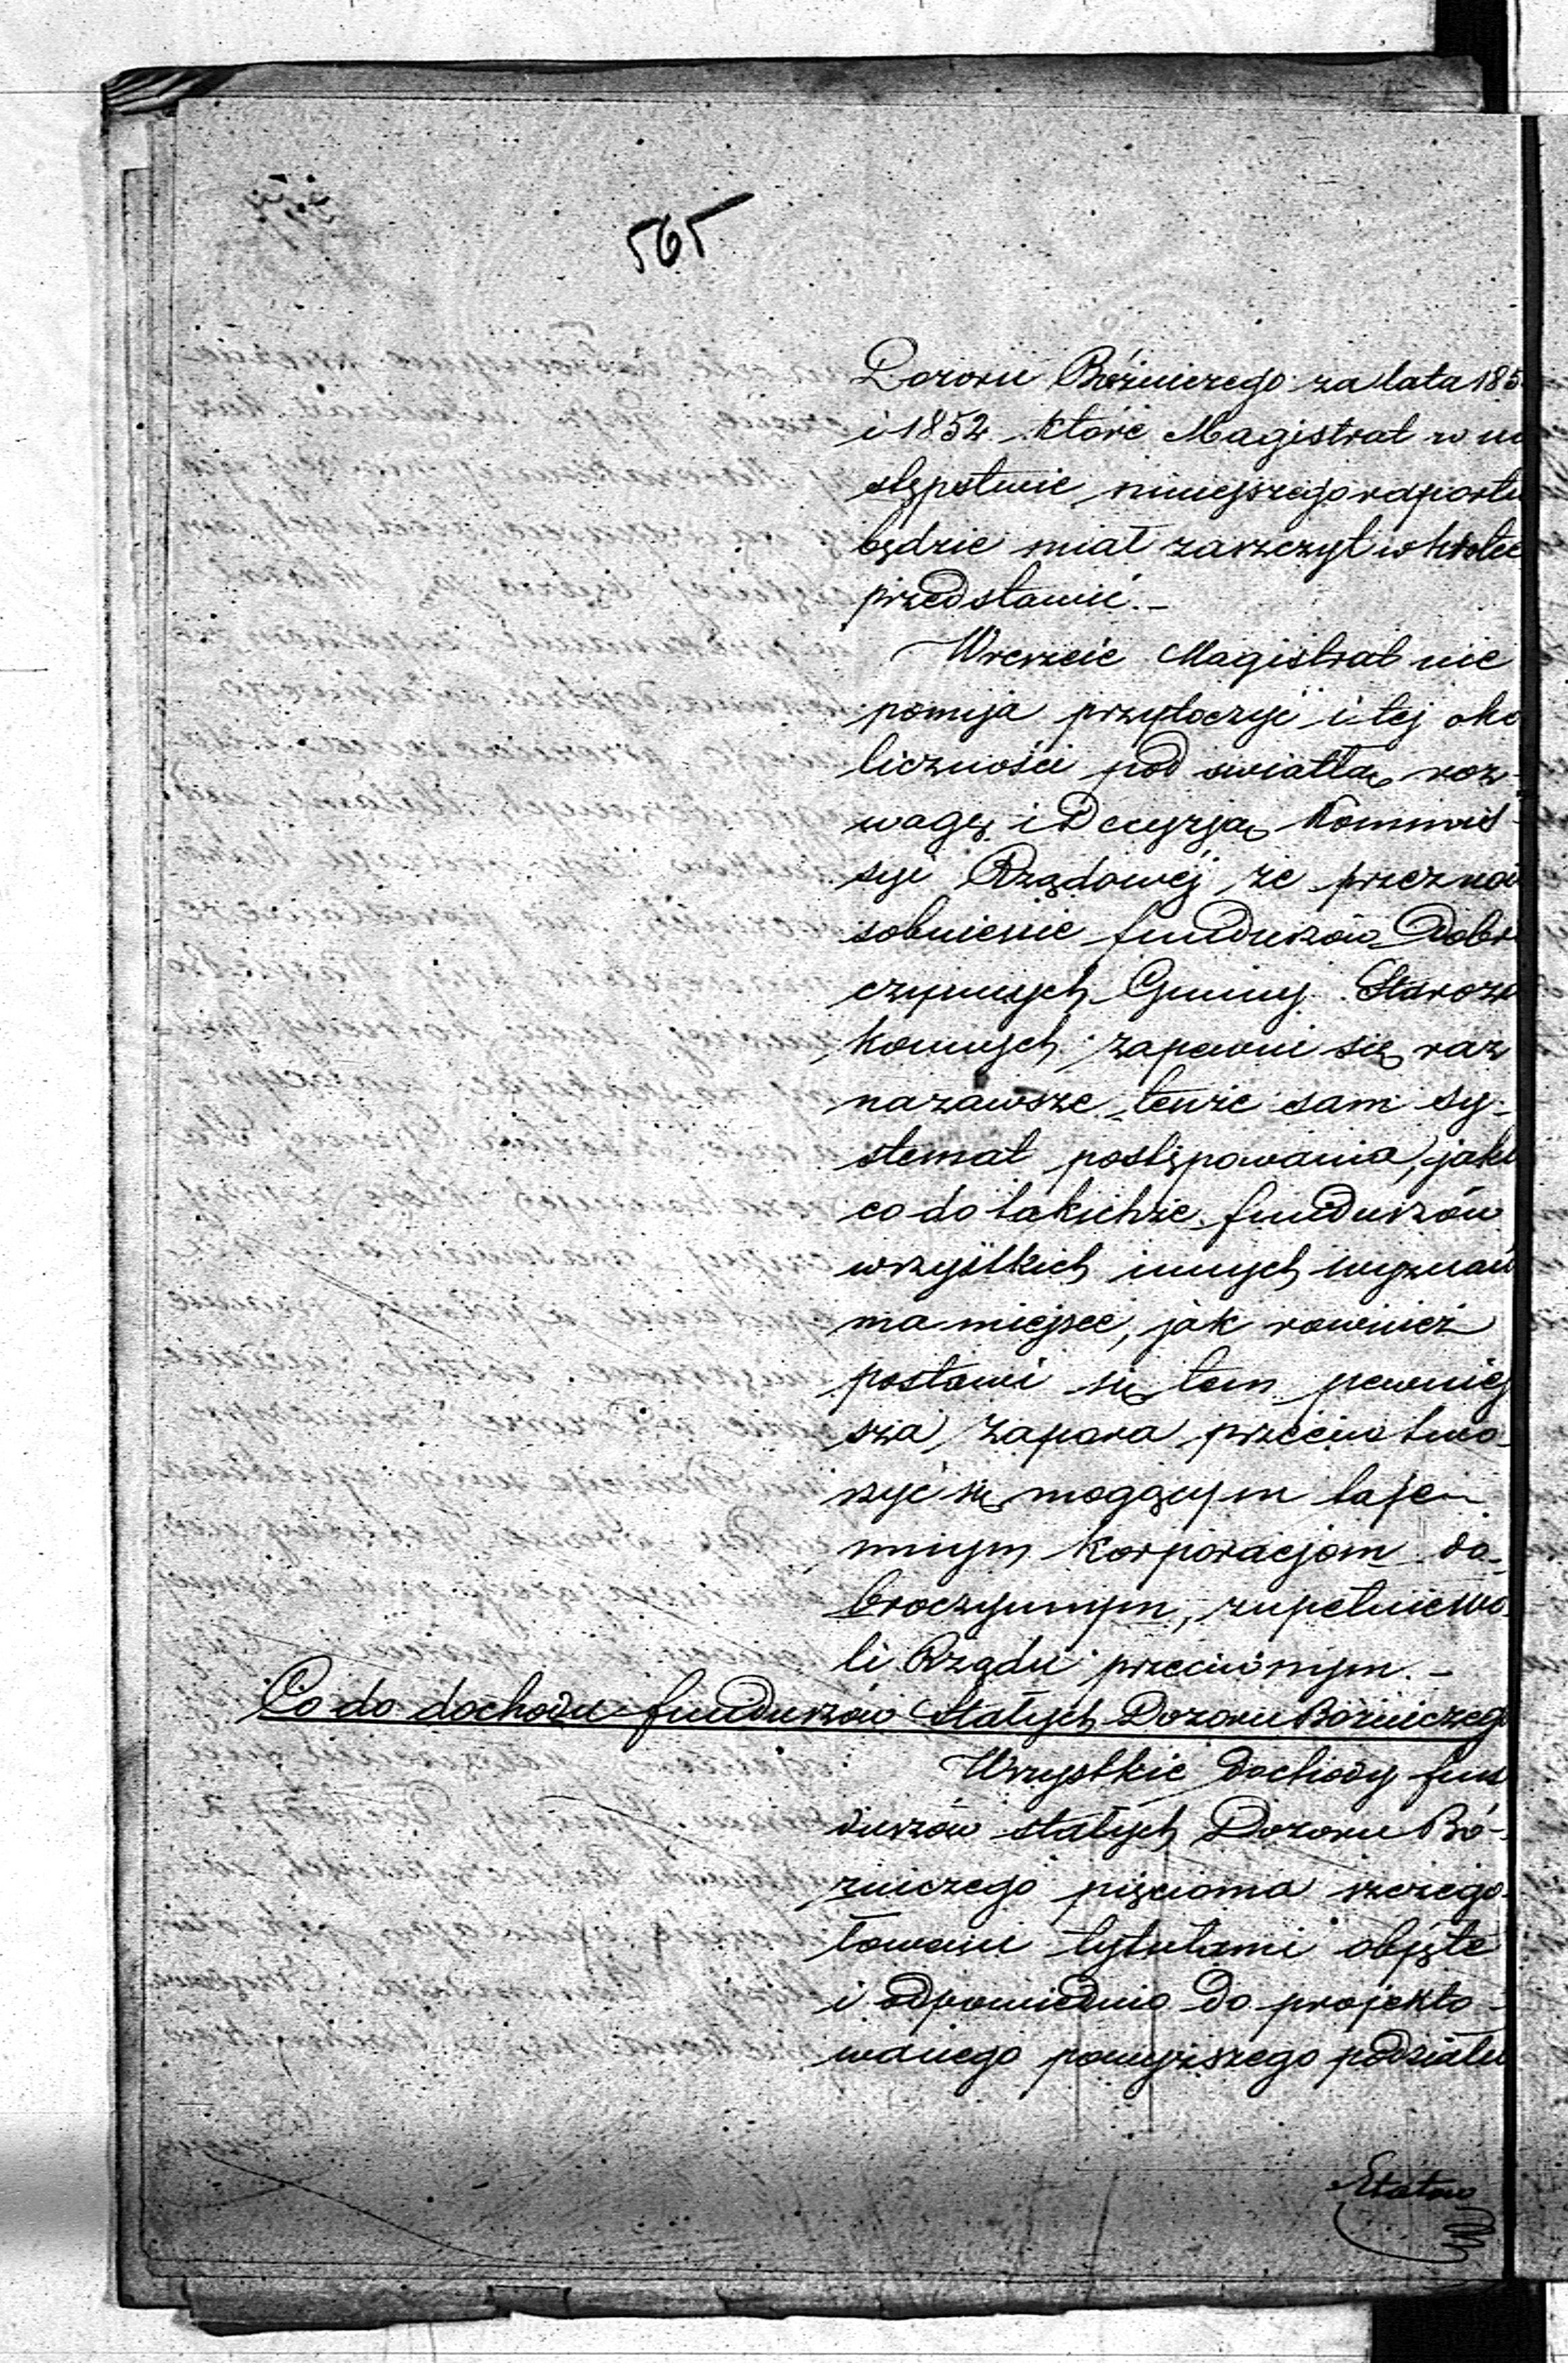 565
Dozoru Bóżniczego za lata 185
i 1852 które Magistrat w na
stępstwie niniejszego rapportu
będzie miał zaszczyt wkrótce
przedstawić. –
Wreszcie Magistrat nie
pomija przytoczyć i tej oko
liczności pod światłą roz-
wagę i Decyzją Kommis-
syi Rządowéj, że przez
sobnienie funduszów Dobro
czynnych Gminy Staroza
konnych zapewni się raz
nazawsze tenże sam sy-
stemat postępowania, jaki
co do takichże funduszów
wszystkich innych wyznań
ma miejsce, jak rownież
postawi się tem pewniej
sza zapora przeciw two-
rzyć się mogącym taje-
mnym korporacjom do-
broczynnym, zupełnie wo-
li Rządu przeciwnym. –
Co do dochodu funduszów Stałych Dozoru Bożniczego
Wszystkie dochody fun
duszów stałych Dozoru Bó-
żniczego pięcioma szczegó-
łowemi tytułami objęte
i odpowiednio do projekto-
wanego powyższego podziału
Etatow